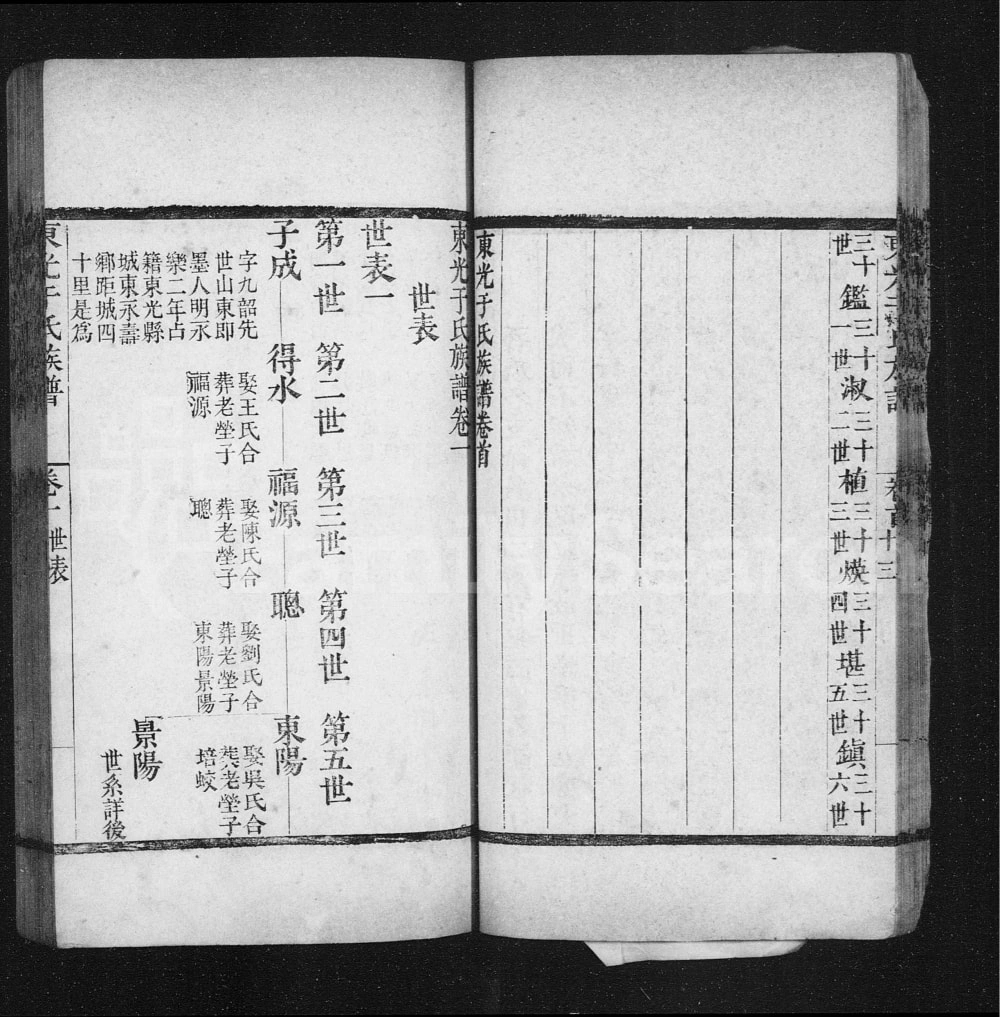 卷首 十三
三十世鑑三十一世淑三十二世植三十三世煐三十四世堪三十五世鎮三十六世
東光于氏族譜卷首
東光于氏族譜卷一
世表
世表一
第一世 第二世 第三世 第四世 第五世
子成 得水 福源 聰 東陽
字九韶先
世山東即
墨人明永
樂二年占
籍東光縣
城東永壽
鄉距城四
十里是爲
娶王氏合
葬老塋子
福源
娶陳氏合
葬老塋子
聰
娶劉氏合
葬老塋子
東陽景陽
娶吳氏合
葬老塋子
培蛟
景陽
世系詳後
東光于氏族譜 卷一 世表